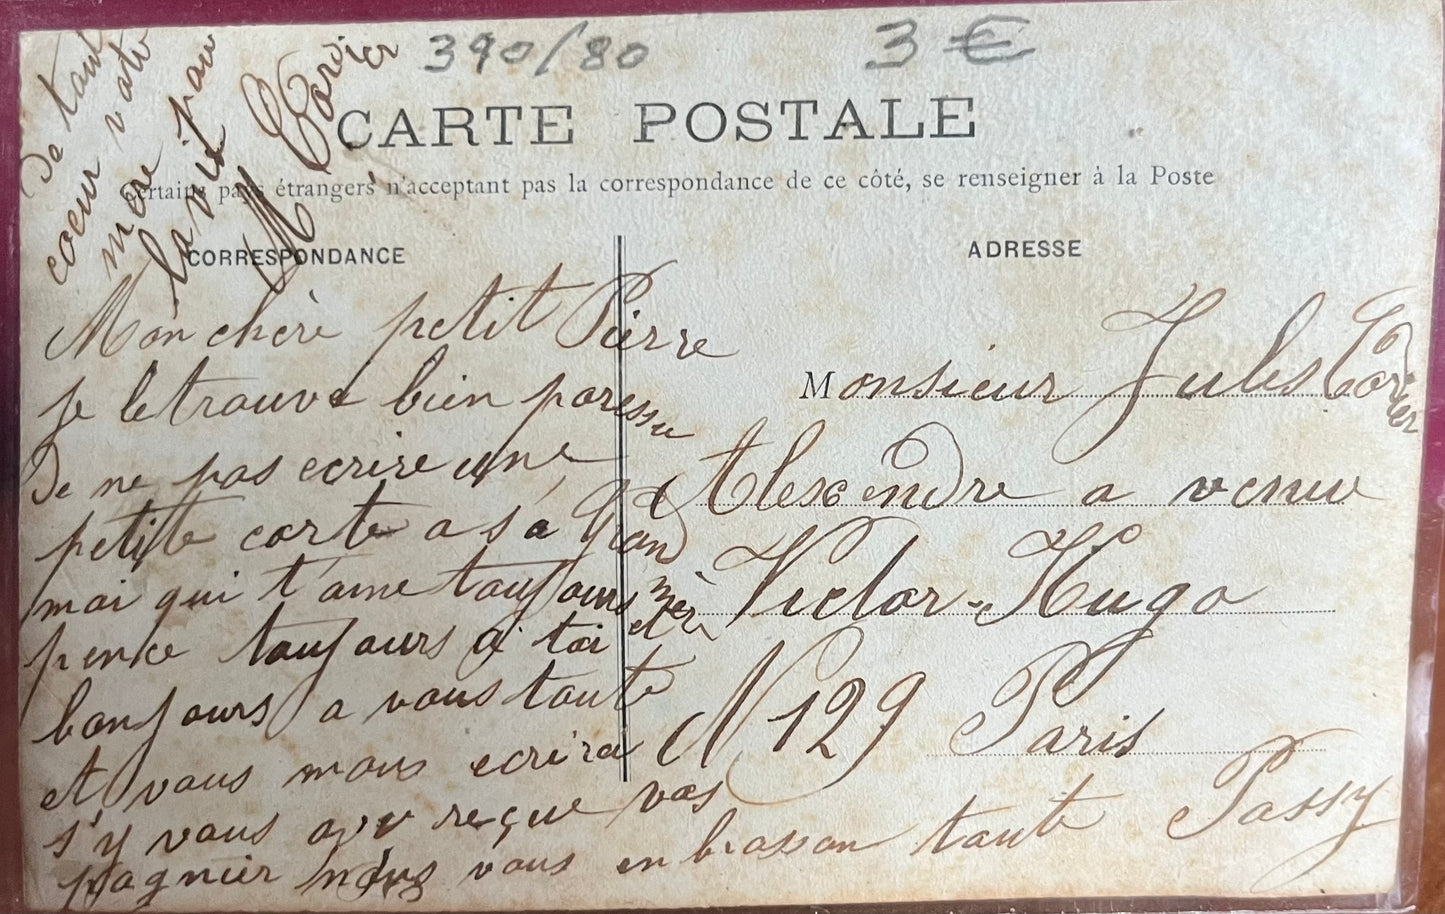 390/80
3 €
CARTE POSTALE
Certains pays étrangers n'acceptant pas la correspondance de ce côté, se renseigner à la Poste
CORRESPONDANCE
Mon chère petit Pierre
je le trouve bien paressu
De ne pas ecrire une
petite carte a sa Gran mèr
moi qui t'aime toujours et
pence toujours a toi
bonjours a vous toute
et vous nous ecrira
s'y vous ave reçue vos
pagnier nous vous enbrasson toute
De tout
coeur votr
mère pour
la vie
M Corvier
ADRESSE
Monsieur Jules Corvier
Alexendre a venue
Victor-Hugo
N 129 Paris
Passy